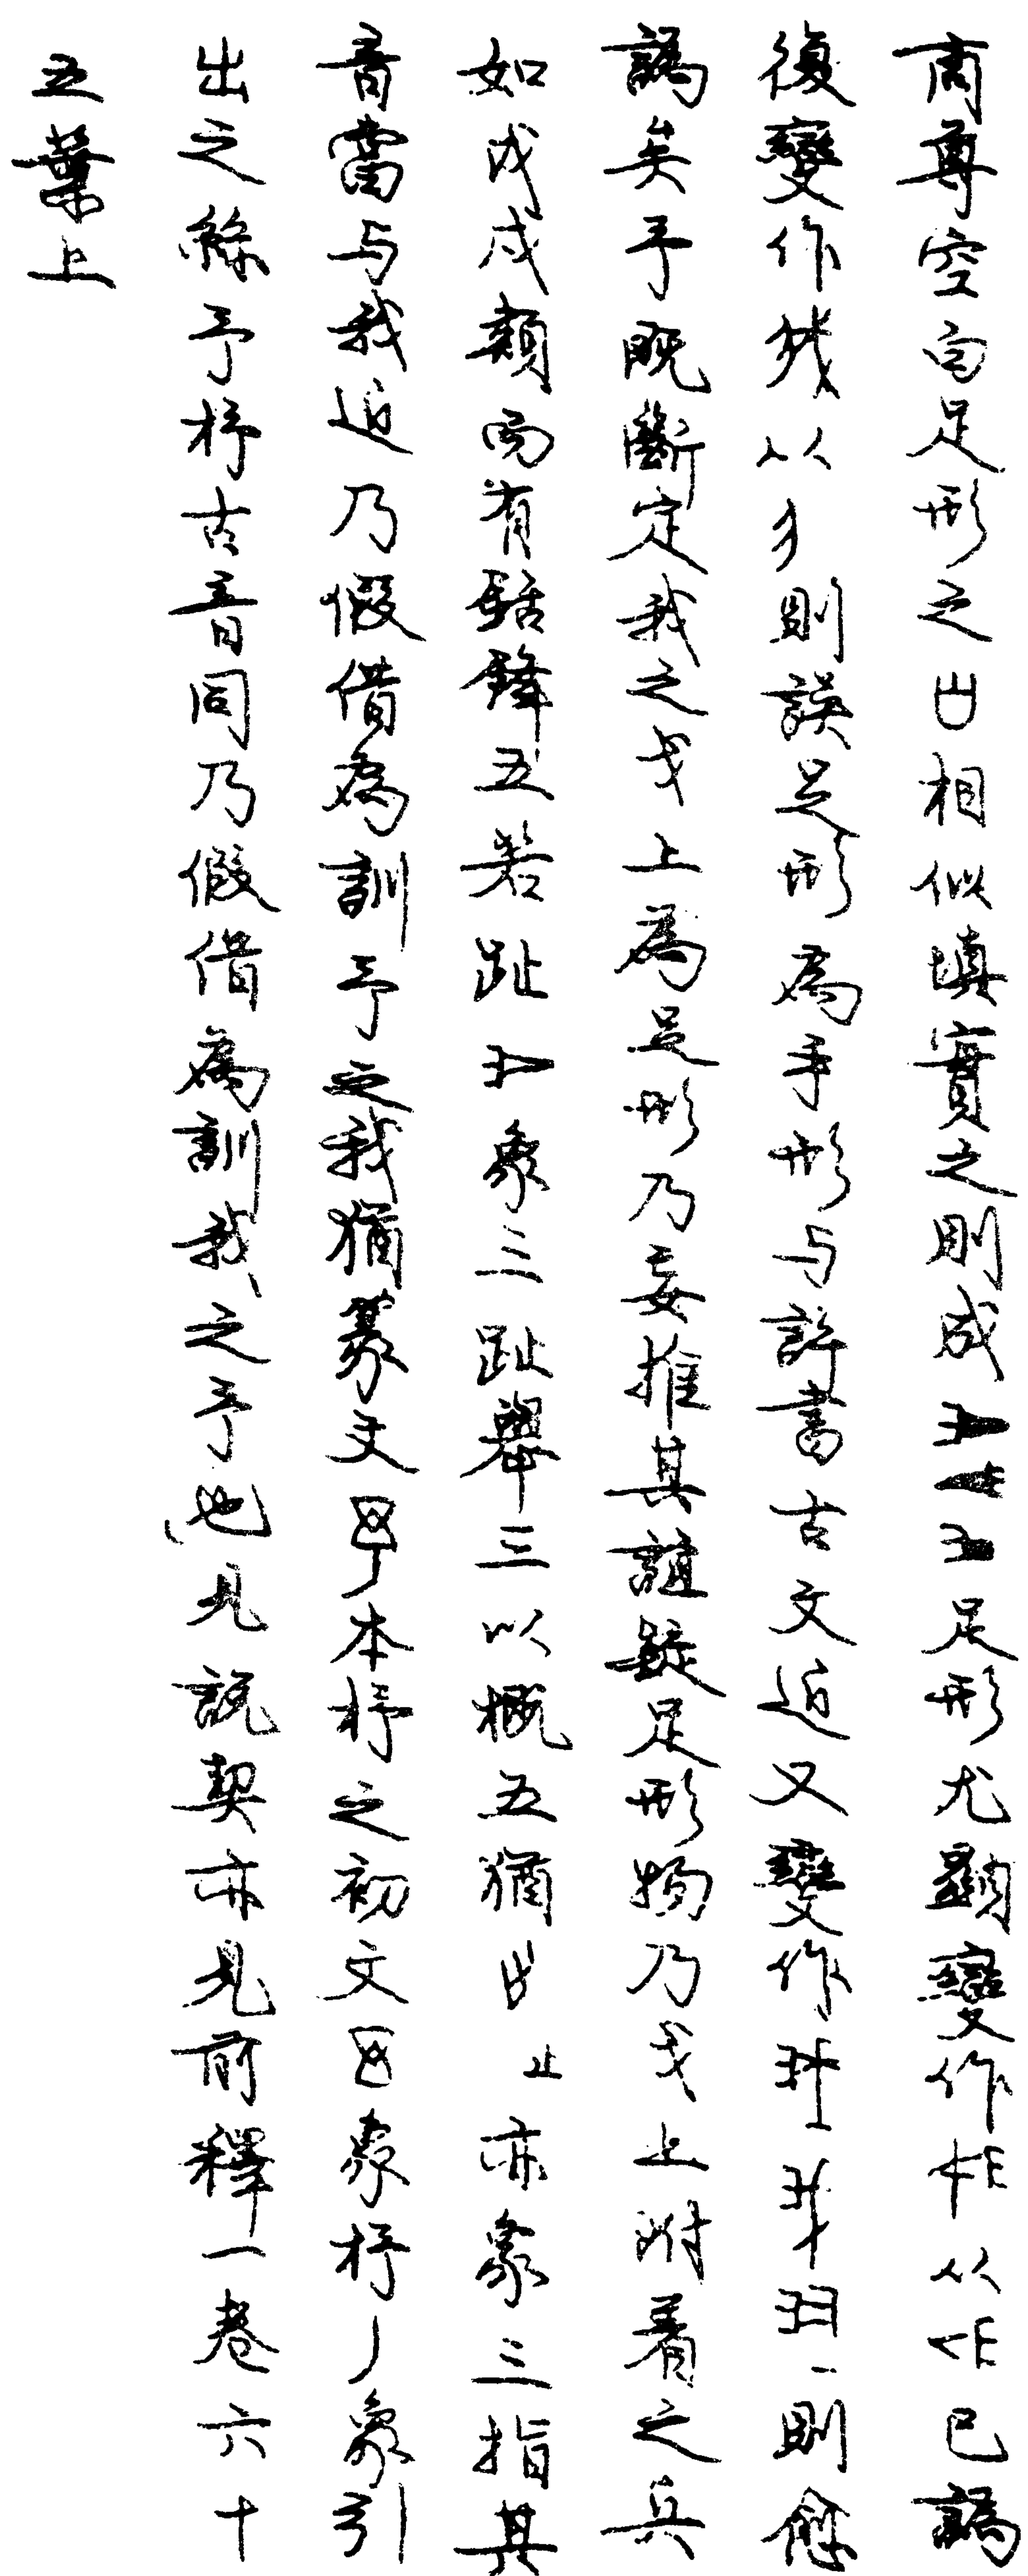 商尊空白足形之凵相似填實之則成足形尤顯變作从已譌
復變作以則誤足形爲手形与許書古文近又變作則愈
譌矣予既斷定我之戈上爲足形乃妄推其誼疑足形物乃戈上附着之兵
如戉戍類而有鋸鋒五若趾象三趾舉三以概五猶止亦象三指其
音當与我近乃假借爲訓予之我猶篆文本杼之初文象杼丿象引
出之絲予杼古音同乃假借爲訓我之予也見説契亦見前釋一卷六十
五葉上